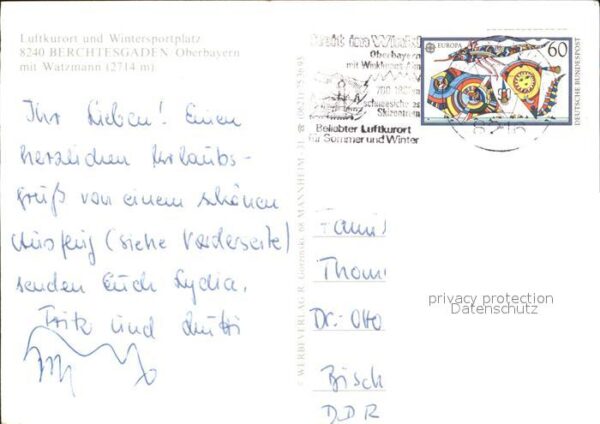 Luftkurort und Wintersportplatz
8240 BERCHTESGADEN Oberbayern
mit Watzmann (2714 m)
Ihr Lieben! Einen
herzlichen Urlaubs-
gruß von einem schönen
Ausflug (siehe Vorderseite)
senden Euch Lydia,
Fritz und
© WERBEVERLAG R. 68 MANNHEIM 31
Oberbayern
mit
700
Skizentrum
Beliebter Luftkurort
für Sommer und Winter
EUROPA
60
DEUTSCHE BUNDESPOST
Famil
Thom
Dr.-Otto
Bisch
DDR
privacy protection
Datenschutz